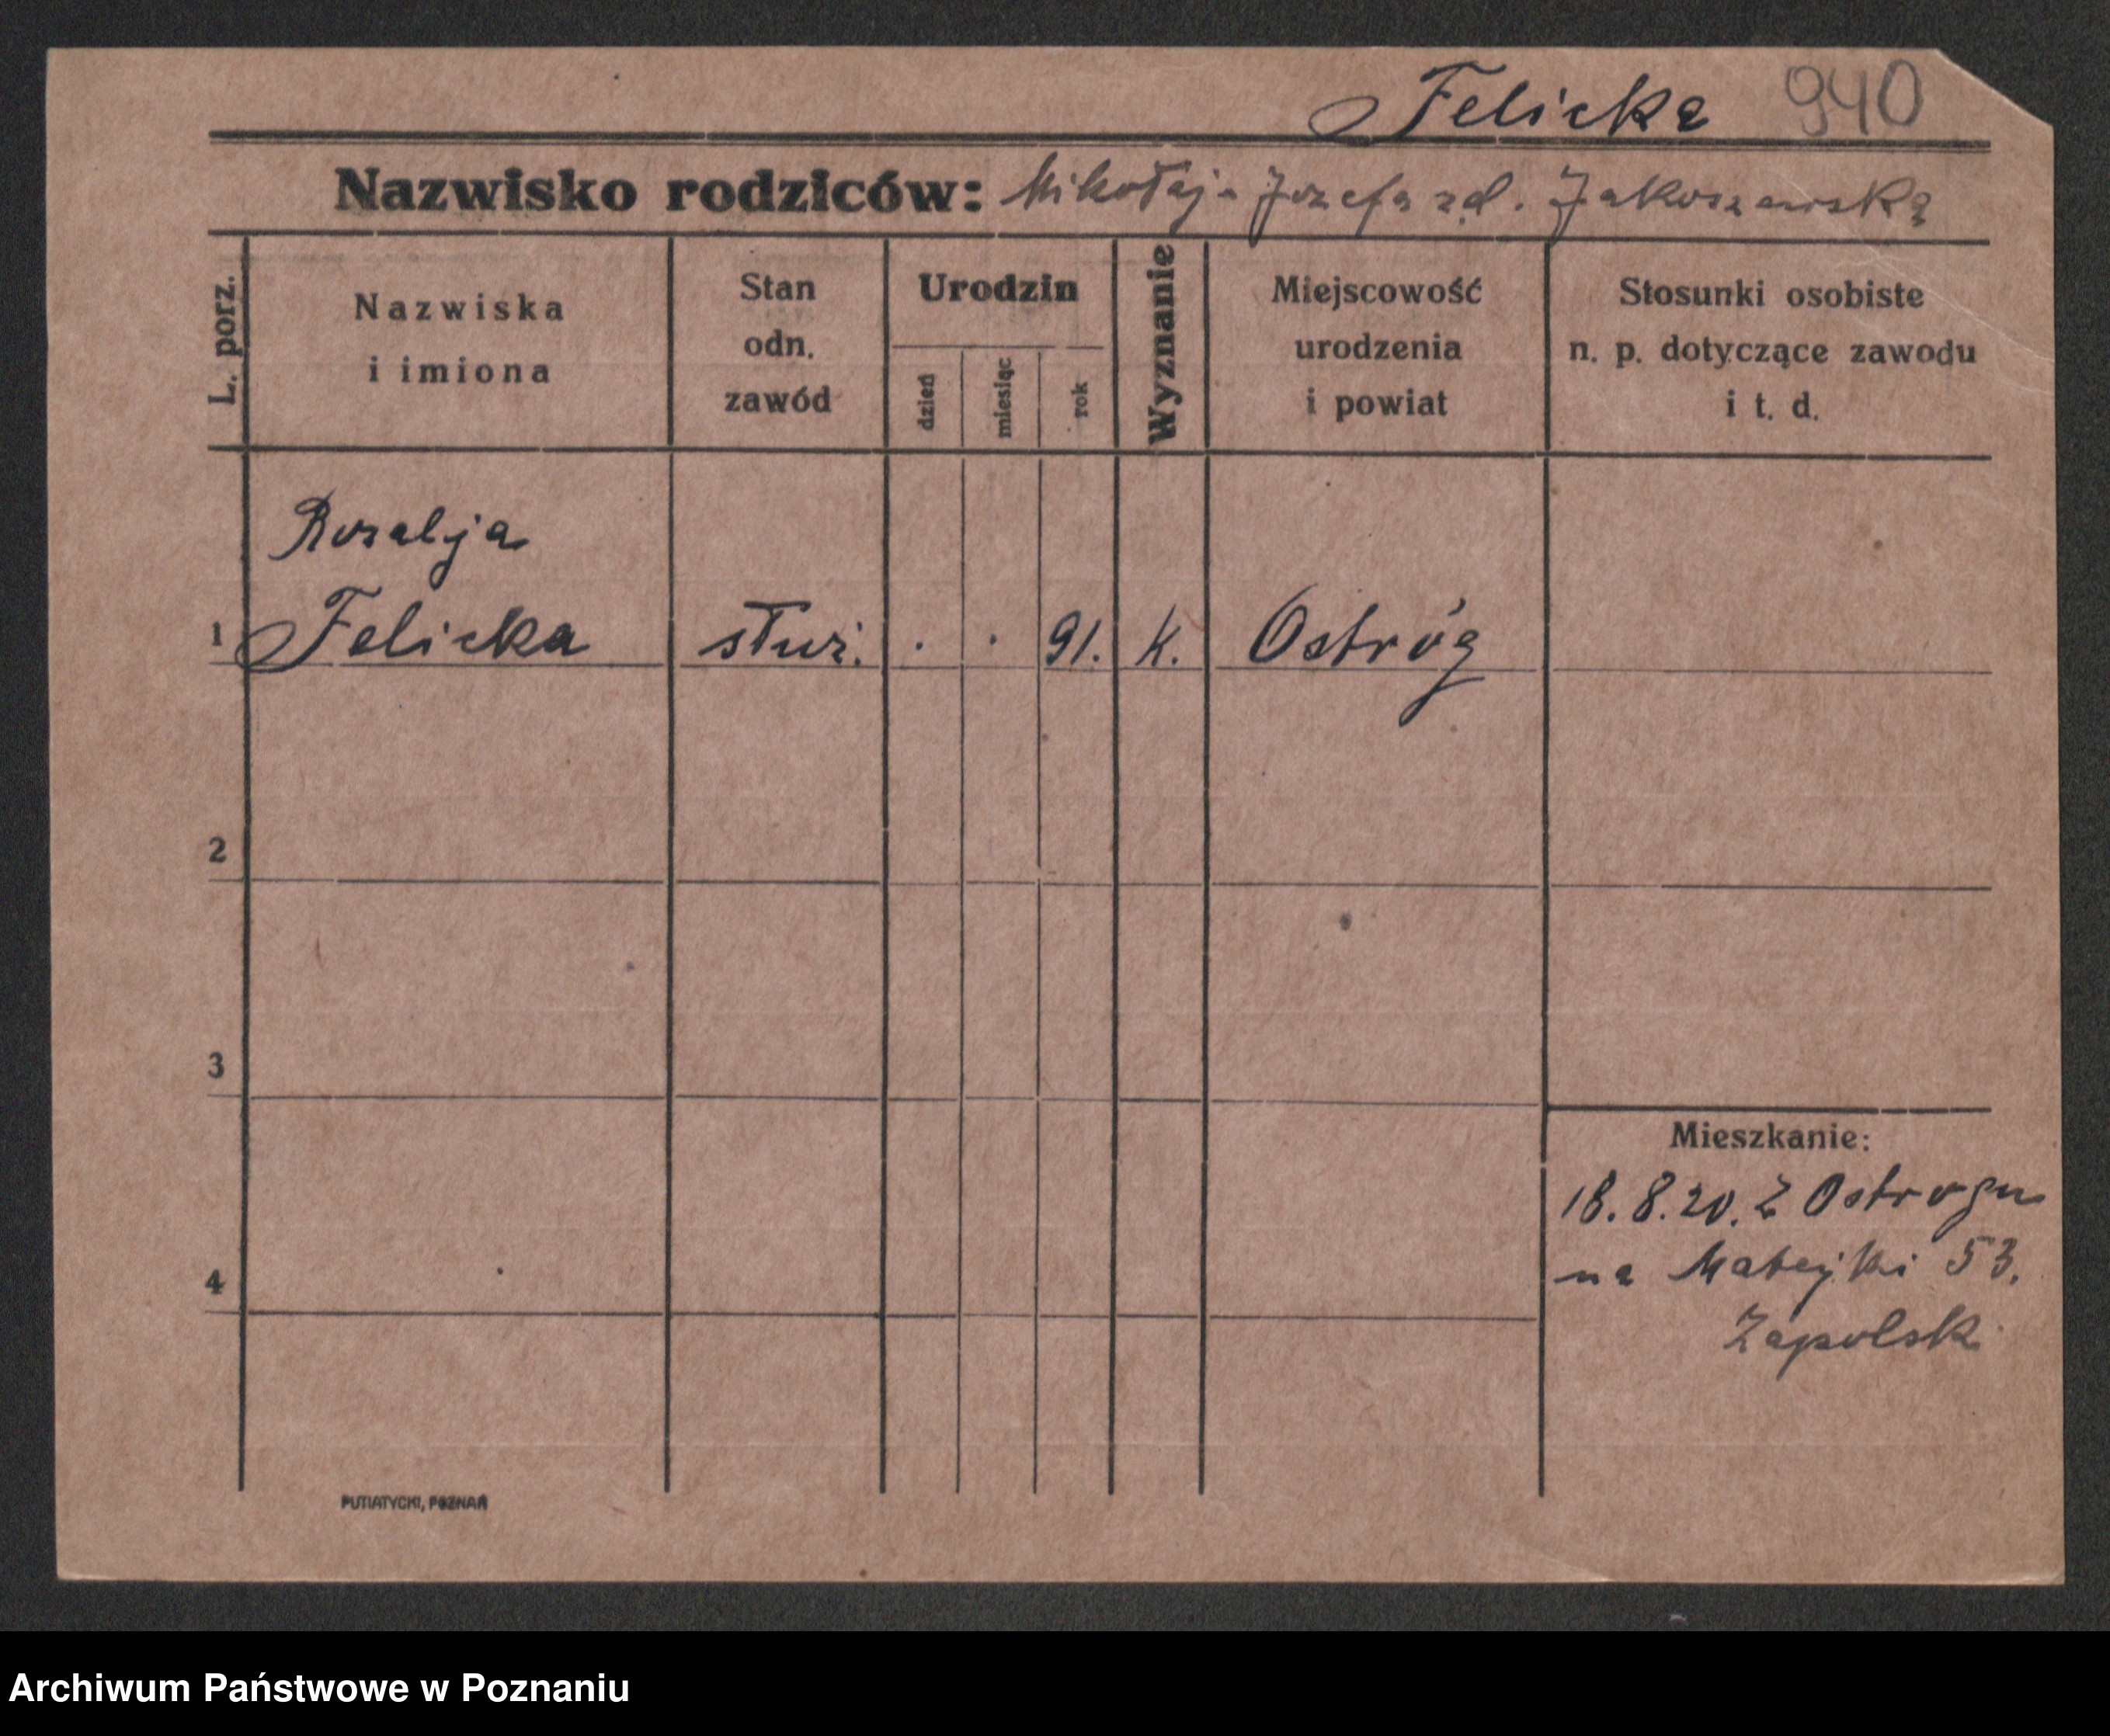 Felicka 940
Nazwisko rodziców: Mikołaj - Józefa z d. Jakoszewska
L. porz.
Nazwiska i imiona
Stan odn. zawód
Urodzin
dzień
miesiąc
rok
Wyznanie
Miejscowość urodzenia i powiat
Stosunki osobiste n. p. dotyczące zawodu i t. d.
Rozalja
1 Felicka służ. . . 91. k. Ostróg
2
3
Mieszkanie:
18.8.20. Z Ostrogu
na Matejki 53.
4
Zapolsk
PUTIATYCKI, POZNAŃ
Archiwum Państwowe w Poznaniu